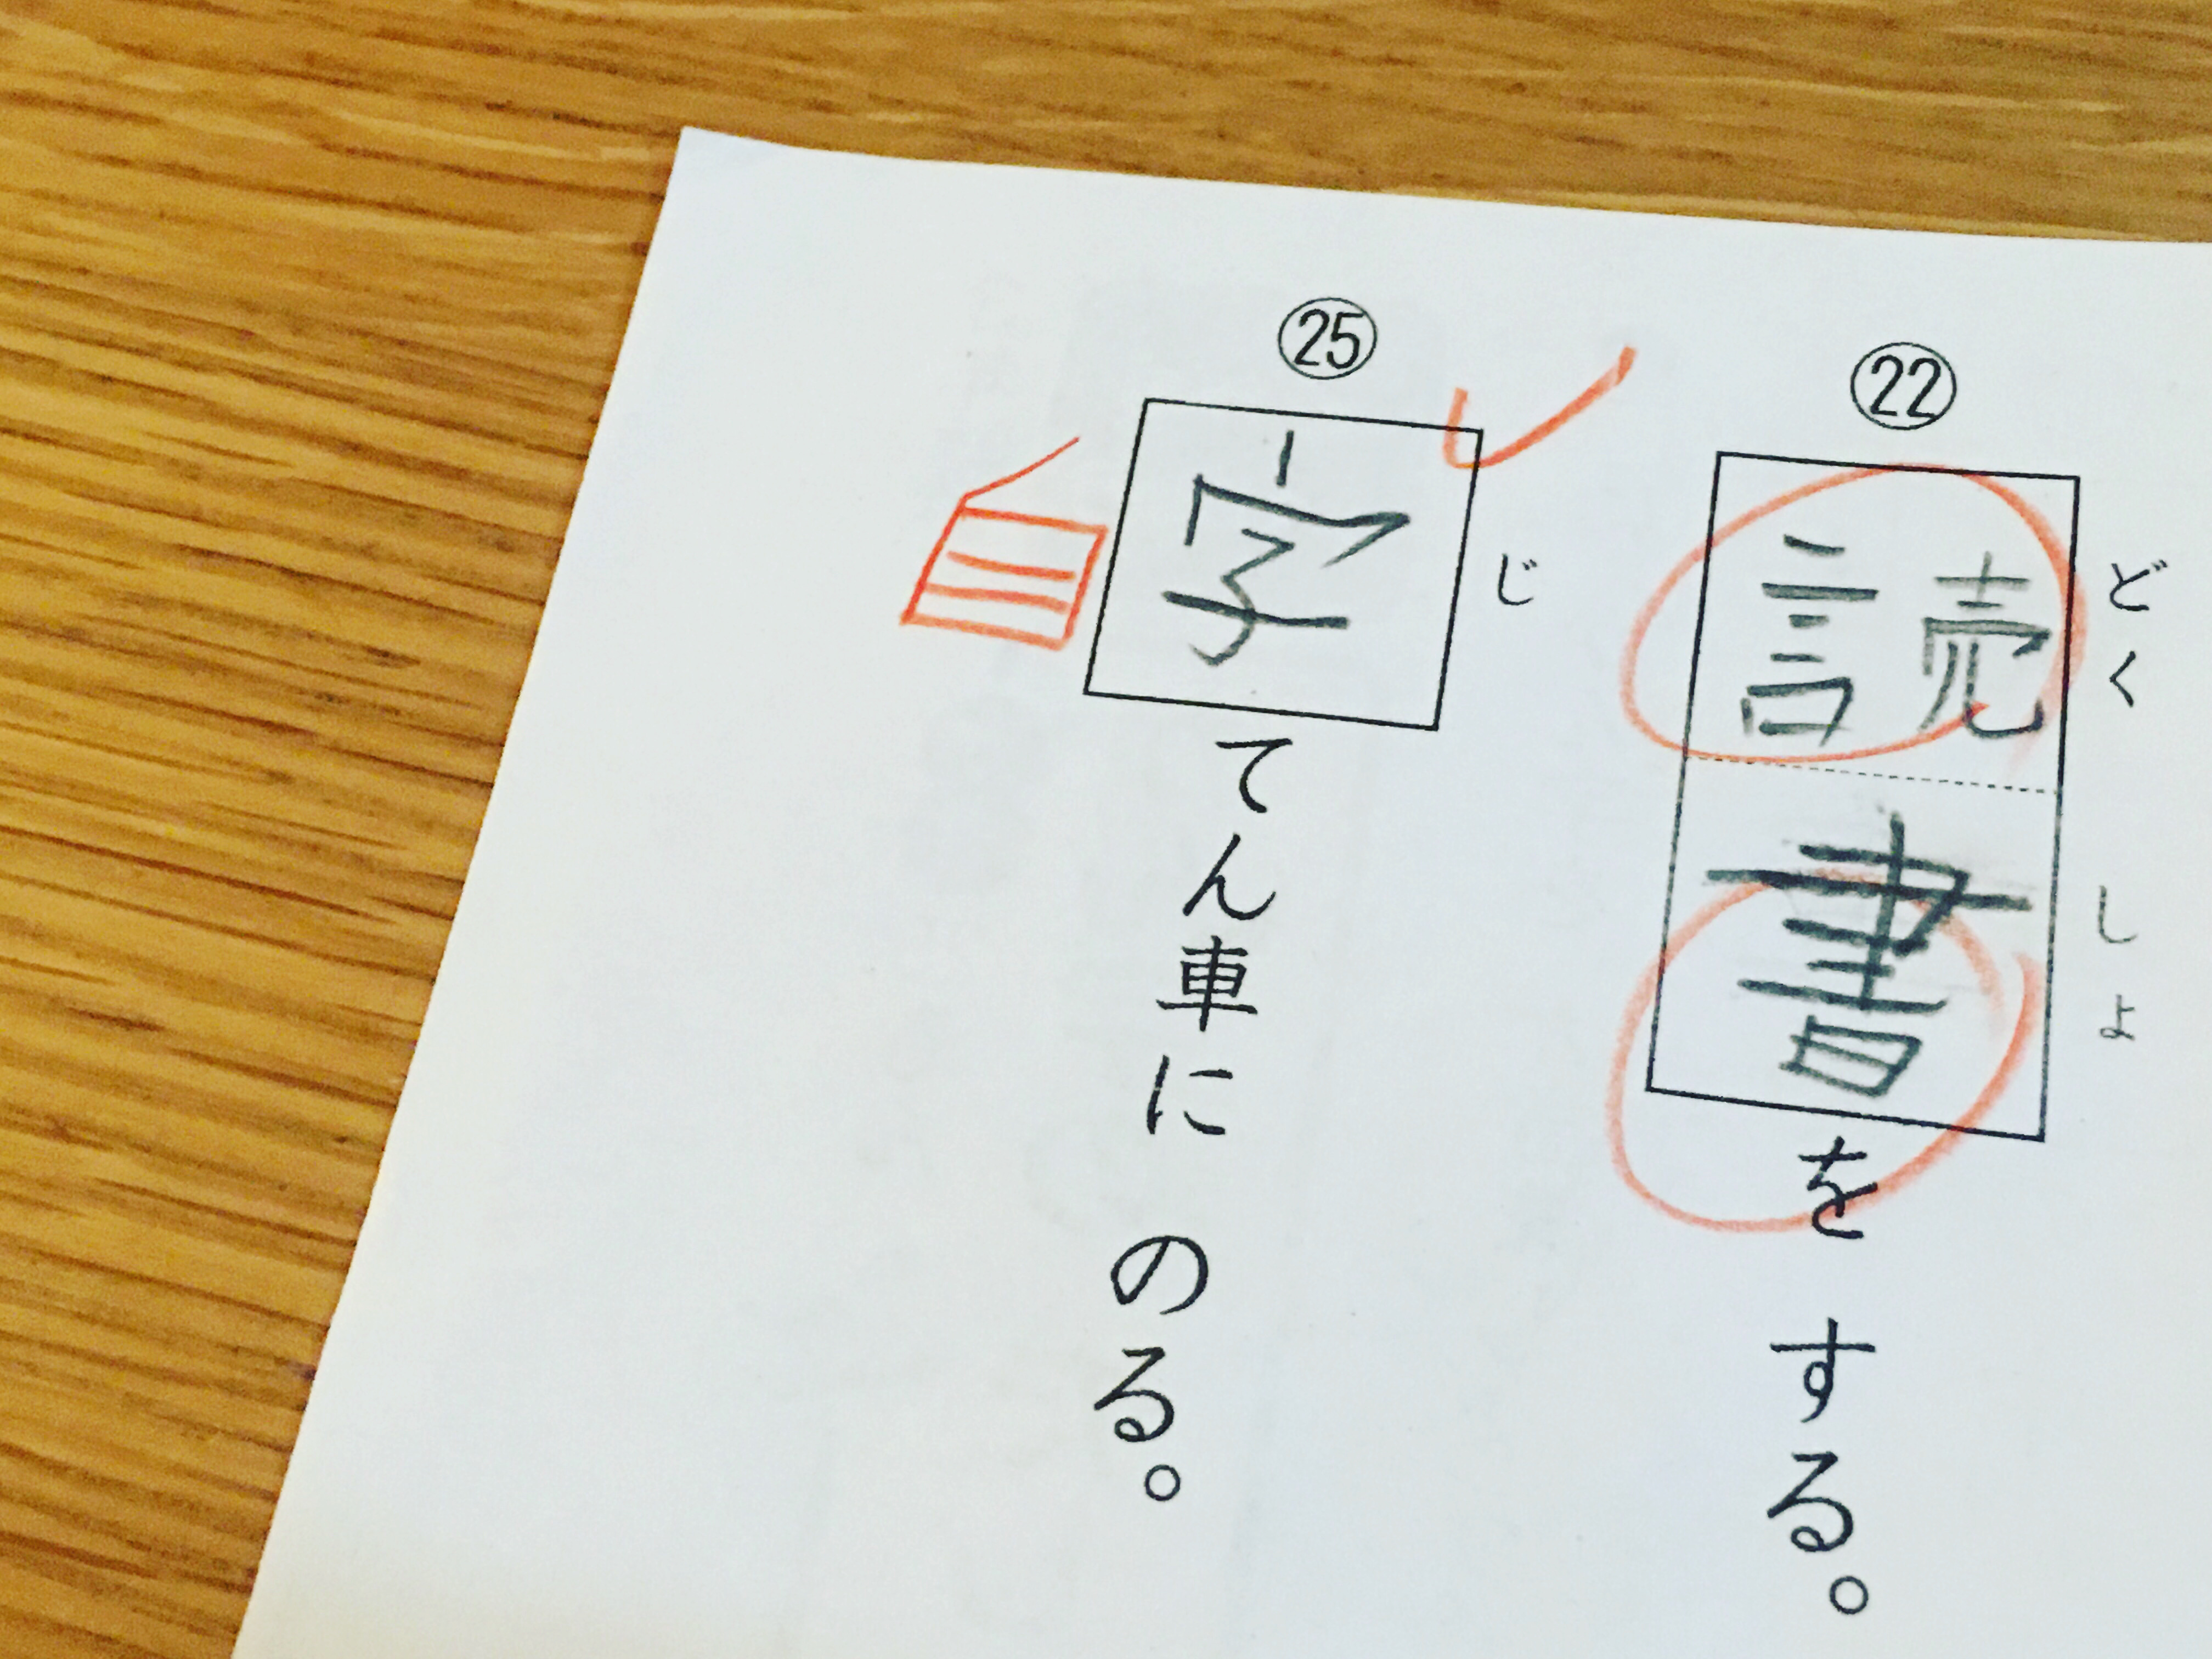 ㉒
読書をする。
どくしょ
㉕
字てん車に のる。
じ
自